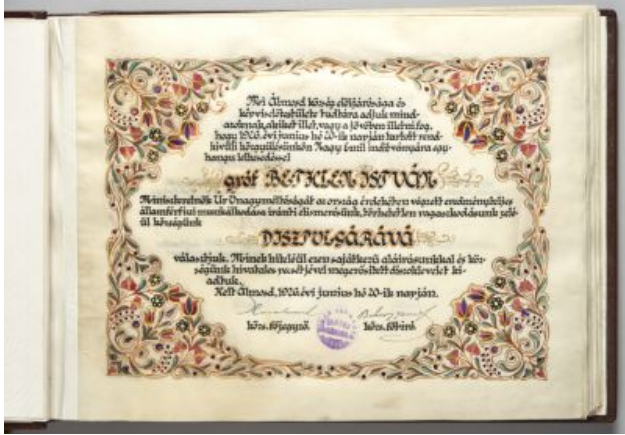 Mi Álmosd község elöljárósága és
képviselőtestülete tudtára adjuk mind-
azoknak, akiket illet, vagy a jövőben illetni fog,
hogy 1926. évi junius hó 20-ik napján tartott rend-
kivüli közgyülésünkön Nagy Emil inditványára egy-
hangu lelkesedéssel
gróf BETHLEN ISTVÁN
Miniszterelnök Úr Önagyméltóságát az ország érdekében végzett eredményteljes
államférfiui munkálkodása iránti elismerésünk, törhetetlen ragaszkodásunk jelé-
ül községünk
DISZPOLGÁRÁVÁ
választjuk. Minek hiteléül ezen sajátkezü aláirásunkkal és köz-
ségünk hivatalos pecsétjével megerősitett díszoklevelet ki-
adtuk.
Kelt Álmosd, 1926. évi junius hó 20-ik napján.
közs. főjegyző. közs. főbiró.